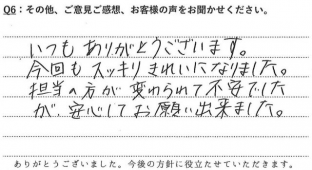 Q6：その他、ご意見ご感想、お客様の声をお聞かせください。
いつもありがとうございます。
今回もスッキリきれいになりました。
担当の方が変わられて不安でした
が、安心してお願い出来ました。
ありがとうございました。今後の方針に役立たせていただきます。